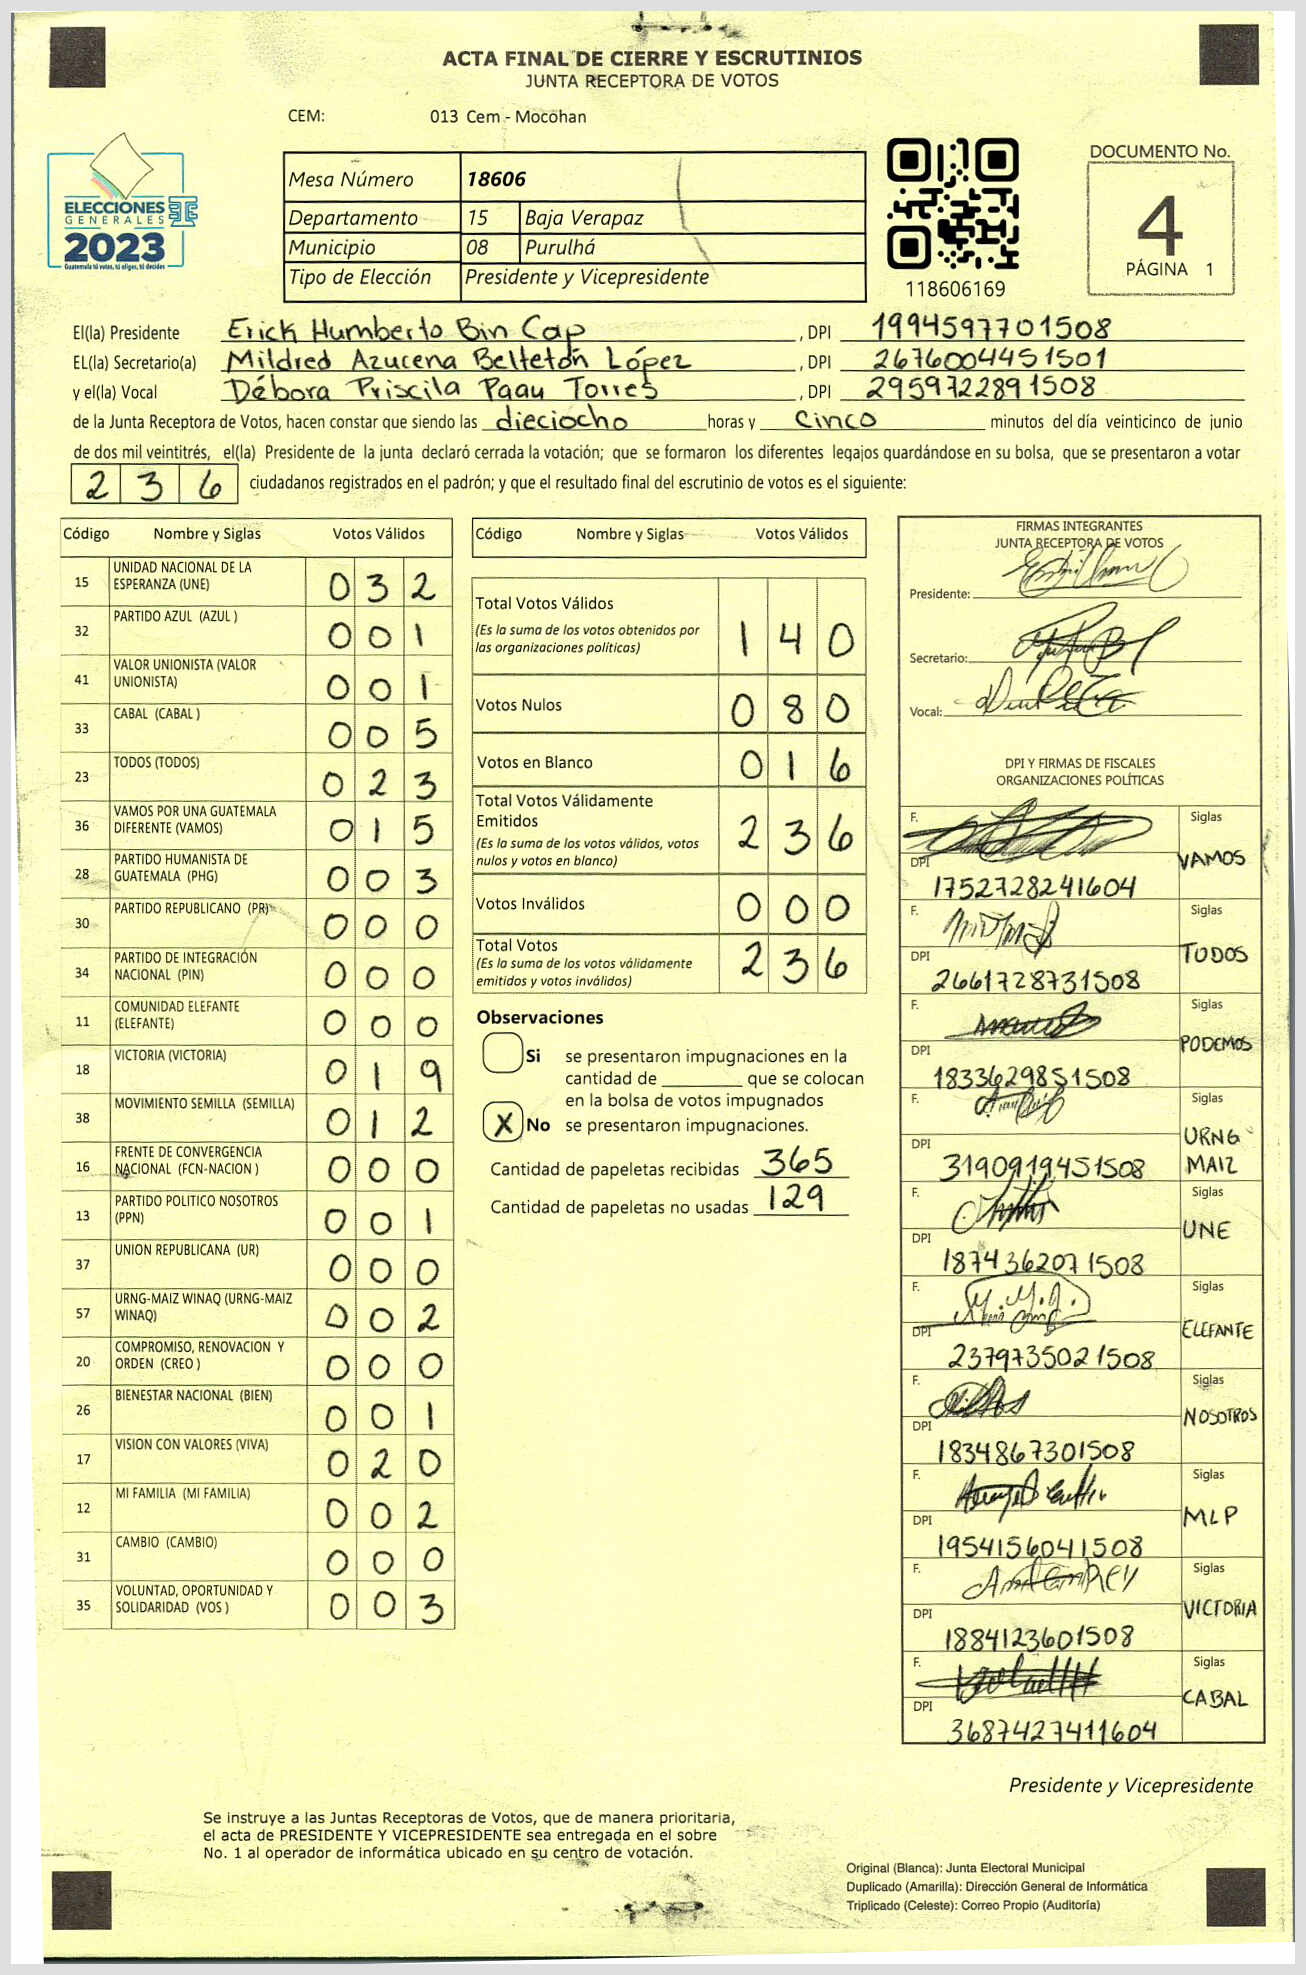 ACTA FINAL DE CIERRE Y ESCRUTINIOS
JUNTA RECEPTORA DE VOTOS
CEM: 013 Cem - Mocohan
ELECCIONES
GENERALES
2023
Guatemala tú votas, tú eliges, tú decides
Mesa Número 18606
Departamento 15 Baja Verapaz
Municipio 08 Purulhá
Tipo de Elección Presidente y Vicepresidente
118606169
DOCUMENTO No.
4
PÁGINA 1
El(la) Presidente Erick Humberto Bin Cap , DPI 1994597701508
EL(la) Secretario(a) Mildred Azucena Beltetón López , DPI 2676004451501
y el(la) Vocal Débora Priscila Paau Torres , DPI 2959722891508
de la Junta Receptora de Votos, hacen constar que siendo las dieciocho horas y cinco minutos del día veinticinco de junio
de dos mil veintitrés, el(la) Presidente de la junta declaró cerrada la votación; que se formaron los diferentes legajos guardándose en su bolsa, que se presentaron a votar
236 ciudadanos registrados en el padrón; y que el resultado final del escrutinio de votos es el siguiente:
Código Nombre y Siglas Votos Válidos
15 UNIDAD NACIONAL DE LA ESPERANZA (UNE) 032
32 PARTIDO AZUL (AZUL ) 001
41 VALOR UNIONISTA (VALOR UNIONISTA) 001
33 CABAL (CABAL ) 005
23 TODOS (TODOS) 023
36 VAMOS POR UNA GUATEMALA DIFERENTE (VAMOS) 015
28 PARTIDO HUMANISTA DE GUATEMALA (PHG) 003
30 PARTIDO REPUBLICANO (PR) 000
34 PARTIDO DE INTEGRACIÓN NACIONAL (PIN) 000
11 COMUNIDAD ELEFANTE (ELEFANTE) 000
18 VICTORIA (VICTORIA) 019
38 MOVIMIENTO SEMILLA (SEMILLA) 012
16 FRENTE DE CONVERGENCIA NACIONAL (FCN-NACION ) 000
13 PARTIDO POLITICO NOSOTROS (PPN) 001
37 UNION REPUBLICANA (UR) 000
57 URNG-MAIZ WINAQ (URNG-MAIZ WINAQ) 002
20 COMPROMISO, RENOVACION Y ORDEN (CREO ) 000
26 BIENESTAR NACIONAL (BIEN) 001
17 VISION CON VALORES (VIVA) 020
12 MI FAMILIA (MI FAMILIA) 002
31 CAMBIO (CAMBIO) 000
35 VOLUNTAD, OPORTUNIDAD Y SOLIDARIDAD (VOS ) 003
Código Nombre y Siglas Votos Válidos
Total Votos Válidos
(Es la suma de los votos obtenidos por
las organizaciones políticas) 140
Votos Nulos 080
Votos en Blanco 016
Total Votos Válidamente
Emitidos
(Es la suma de los votos válidos, votos
nulos y votos en blanco) 236
Votos Inválidos 000
Total Votos
(Es la suma de los votos válidamente
emitidos y votos inválidos) 236
Observaciones
Si se presentaron impugnaciones en la
cantidad de ________ que se colocan
en la bolsa de votos impugnados
X No se presentaron impugnaciones.
Cantidad de papeletas recibidas 365
Cantidad de papeletas no usadas 129
FIRMAS INTEGRANTES
JUNTA RECEPTORA DE VOTOS
Presidente:
Secretario:
Vocal:
DPI Y FIRMAS DE FISCALES
ORGANIZACIONES POLÍTICAS
F. Siglas
DPI 1752728241604 VAMOS
F. Siglas
DPI 2661728731508 TODOS
F. Siglas
DPI 1833629851508 PODEMOS
F. Siglas
DPI 3190919451508 URNG MAIZ
F. Siglas
DPI 1874362071508 UNE
F. Siglas
DPI 2379735021508 ELEFANTE
F. Siglas
DPI 1834867301508 NOSOTROS
F. Siglas
DPI 1954156041508 MLP
F. Siglas
DPI 1884123601508 VICTORIA
F. Siglas
DPI 3687427411604 CABAL
Presidente y Vicepresidente
Se instruye a las Juntas Receptoras de Votos, que de manera prioritaria,
el acta de PRESIDENTE Y VICEPRESIDENTE sea entregada en el sobre
No. 1 al operador de informática ubicado en su centro de votación.
Original (Blanca): Junta Electoral Municipal
Duplicado (Amarilla): Dirección General de Informática
Triplicado (Celeste): Correo Propio (Auditoría)